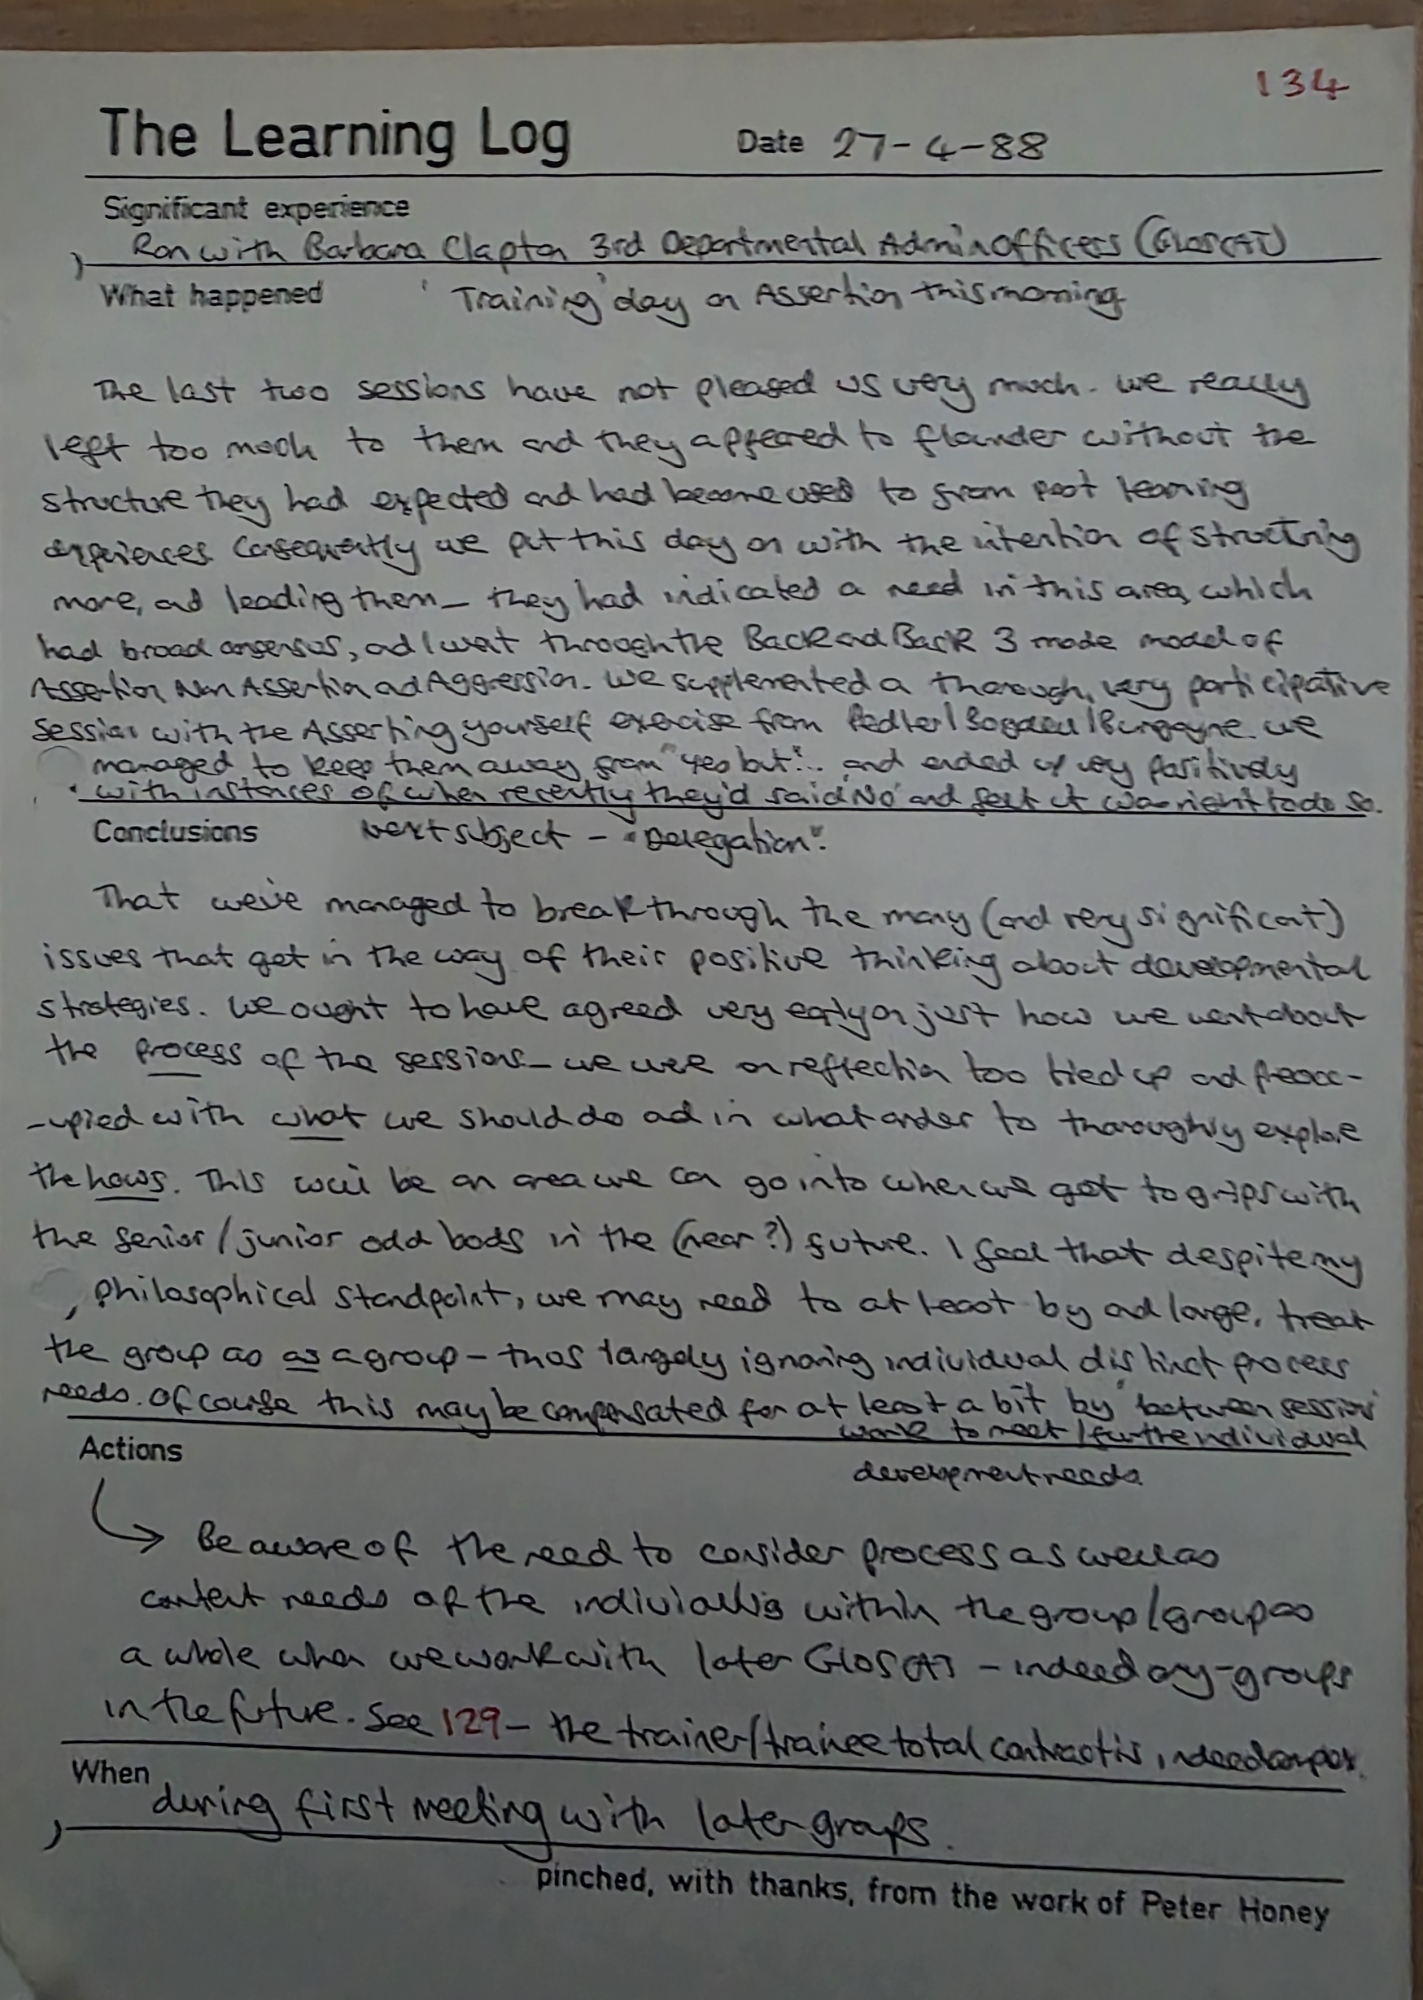 134
The Learning Log Date 27-4-88
Significant experience
Ran with Barbara Clapton 3rd Departmental Admin Officers (GLOSCAT)
What happened 'Training' day on Assertion this morning
The last two sessions have not pleased us very much. We really
left too much to them and they appeared to flounder without the
structure they had expected and had become used to from past learning
experiences. Consequently we put this day on with the intention of structuring
more, and leading them - they had indicated a need in this area, which
had broad consensus, and I went through the Back and Back 3 mode model of
Assertion Non Assertion and Aggression. We supplemented a thorough, very participative
session with the Asserting yourself exercise from Pedler/Bogdell/Burgoyne. We
managed to keep them away from "yes but".. and ended up very positively
with instances of when recently they'd said 'No' and felt it was right to do so.
Conclusions Next subject - "Delegation".
That we've managed to break through the many (and very significant)
issues that get in the way of their positive thinking about developmental
strategies. We ought to have agreed very early on just how we went about
the process of the sessions - we were on reflection too tied up and preocc-
-upied with what we should do and in what order to thoroughly explore
the hows. This will be an area we can go into when we get to grips with
the senior/junior odd bods in the (near?) future. I feel that despite my
philosophical standpoint, we may need to at least by and large, treat
the group as as a group - thus largely ignoring individual distinct process
needs. Of course this may be compensated for at least a bit by "between session"
work to meet/further individual
development needs.
Actions
Be aware of the need to consider process as well as
content needs of the individuals within the group/group as
a whole when we work with later GLOSCAT - indeed any - groups
in the future. See 129 - the trainer/trainee total contract is indeed complex.
When
during first meeting with later groups.
pinched, with thanks, from the work of Peter Honey